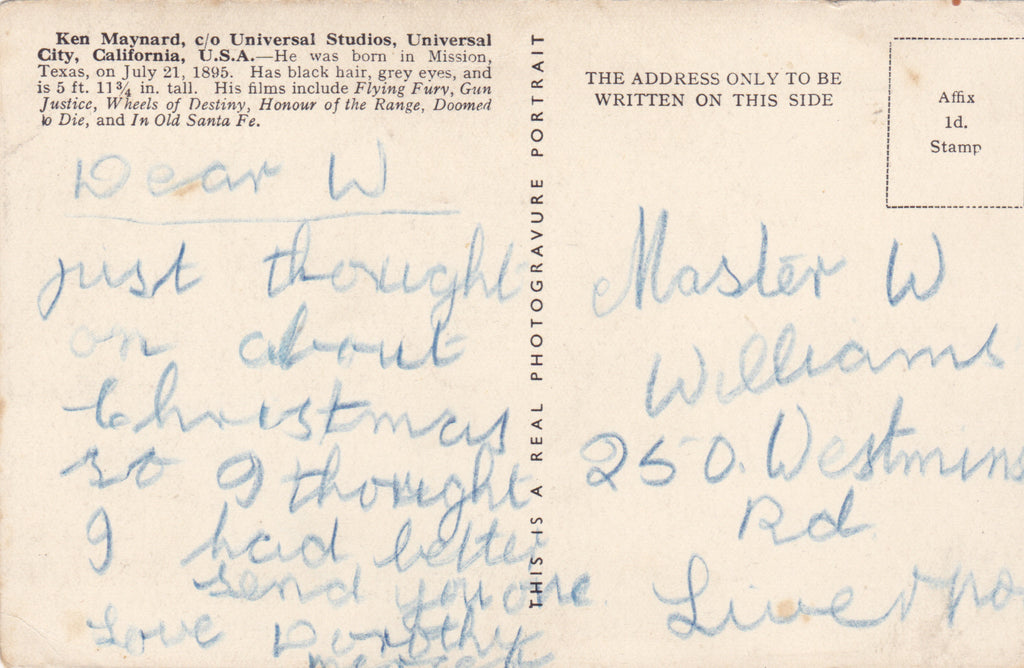 Ken Maynard, c/o Universal Studios, Universal
City, California, U.S.A.—He was born in Mission,
Texas, on July 21, 1895. Has black hair, grey eyes, and
is 5 ft. 11¾ in. tall. His films include Flying Fury, Gun
Justice, Wheels of Destiny, Honour of the Range, Doomed
to Die, and In Old Santa Fe.
Dear W
just thought
on about
Christmas
so I thought
I had better
send you one
Love Dorothy
THIS IS A REAL PHOTOGRAVURE PORTRAIT
THE ADDRESS ONLY TO BE
WRITTEN ON THIS SIDE
Affix
1d.
Stamp
Master W
Williams
250. Westmins
Rd
Liverpo